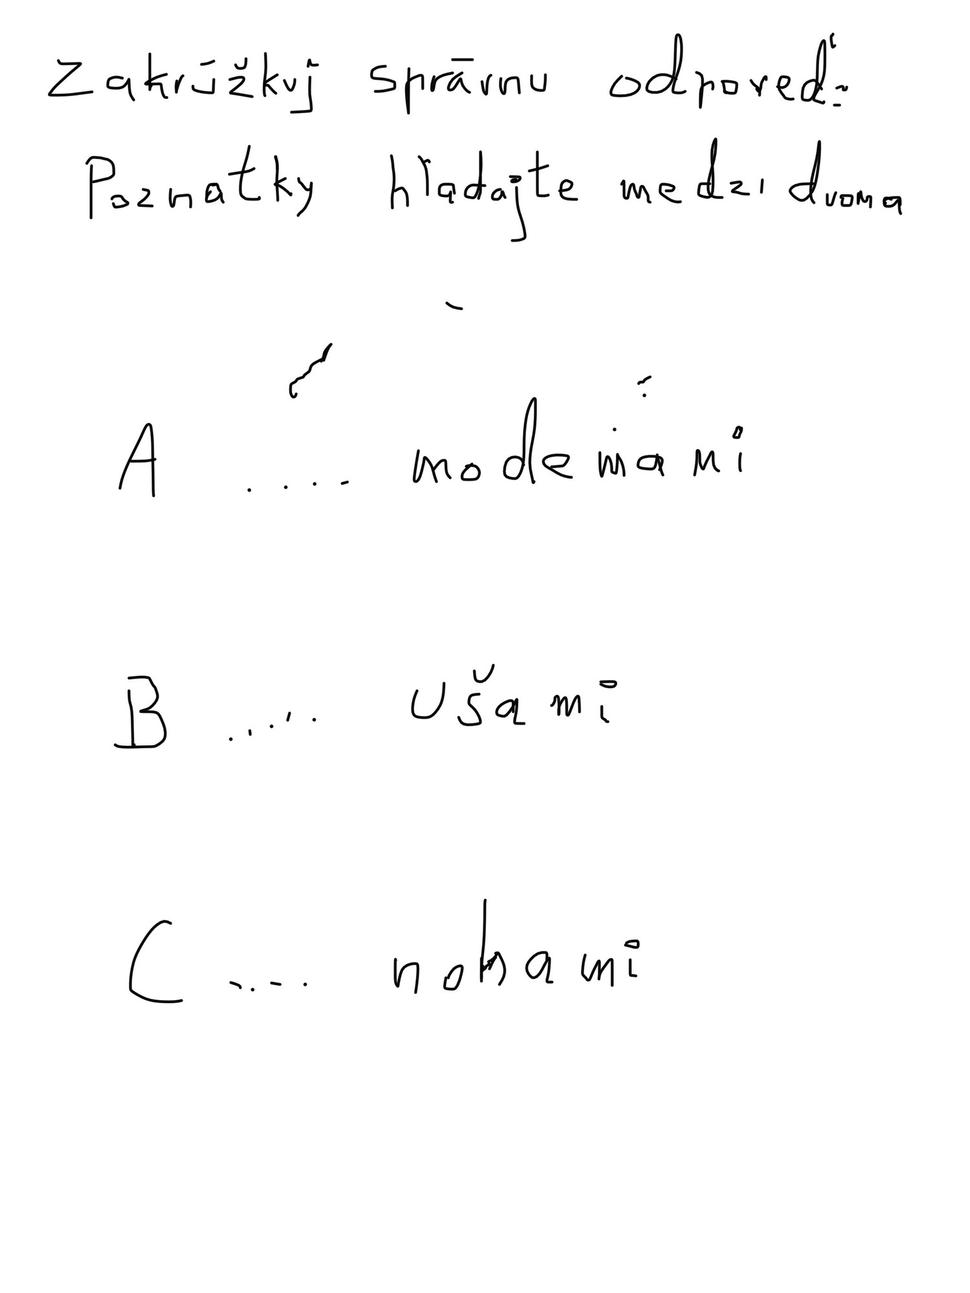 Zakrúžkuj správnu odpoveď:
Poznatky hľadajte medzi dvoma
A .... modemami
B ..... ušami
C ..... nohami